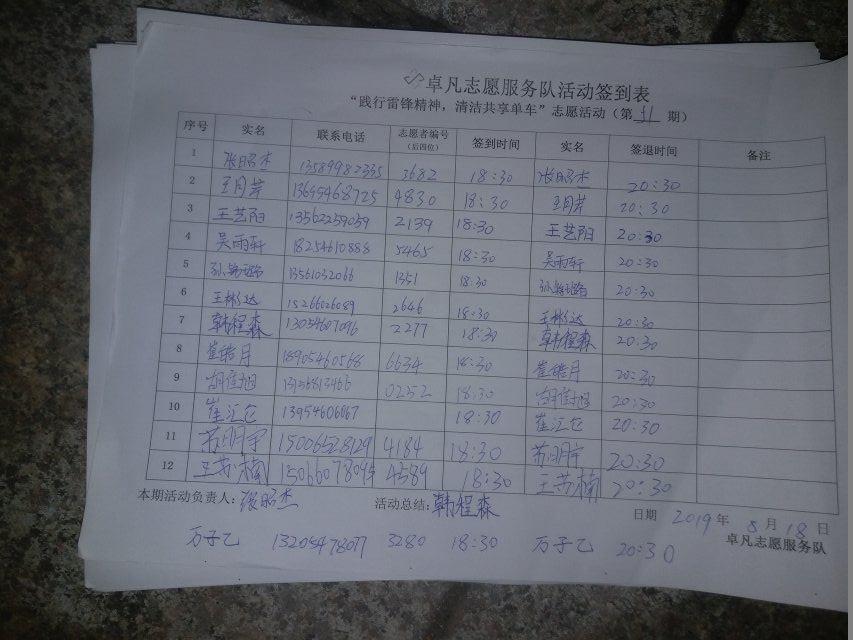 卓凡志愿服务队活动签到表
“践行雷锋精神,清洁共享单车”志愿活动(第 11 期)
序号 实名 联系电话 志愿者编号(后四位) 签到时间 实名 签退时间 备注
1 张昭杰 13589982335 3682 18:30 张昭杰 20:30
2 王月岩 13695468725 4830 18:30 王月岩 20:30
3 王艺阳 13562259059 2139 18:30 王艺阳 20:30
4 吴雨轩 18254610888 5465 18:30 吴雨轩 20:30
5 13561032066 1351 18:30 20:30
6 王彬达 15266026089 2646 18:30 王彬达 20:30
7 韩程森 13054607096 2277 18:30 韩程森 20:30
8 崔皓月 18905460568 6634 18:30 崔皓月 20:30
9 0252 18:30 20:30
10 崔汇仓 13954606067 18:30 崔汇仓 20:30
11 苏明宇 15006528129 4184 18:30 苏明宇 20:30
12 王苏楠 15066078095 4389 18:30 王苏楠 20:30
本期活动负责人:张昭杰 活动总结:韩程森 日期 2019 年 8 月 18 日
万子乙 13205478077 3280 18:30 万子乙 20:30
卓凡志愿服务队